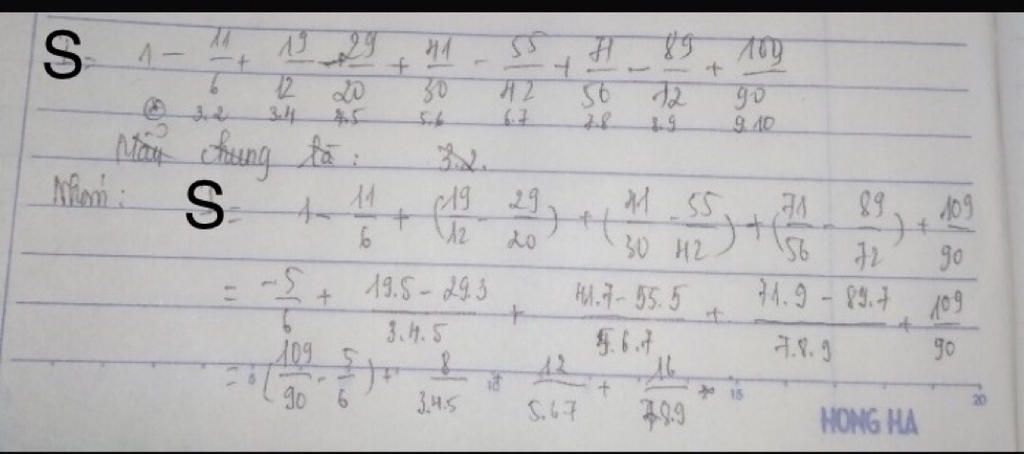 S = 1 - 11/6 + 19/12 - 29/20 + 41/30 - 55/42 + 71/56 - 89/12 + 109/90
⊛ 3.2 3.4 4.5 5.6 6.7 7.8 8.9 9.10
Mẫu chung là : 3.2.
Nhóm : S = 1 - 11/6 + (19/12 - 29/20) + (41/30 - 55/42) + (71/56 - 89/72) + 109/90
= -5/6 + 19.5 - 29.3/3.4.5 + 41.7 - 55.5/5.6.7 + 71.9 - 89.7/7.8.9 + 109/90
= (109/90 - 5/6) + 8/3.4.5 + 12/5.6.7 + 16/7.8.9
5 10 15 20
HONG HA